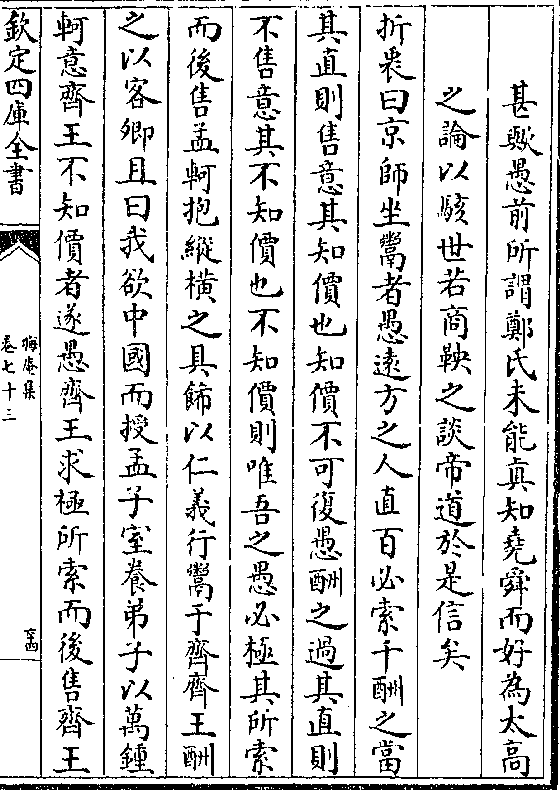 甚歟愚前所謂鄭氏未能真知堯舜而好為太高
之論以駭世若商鞅之談帝道於是信矣
折衷曰京師坐鬻者愚遠方之人直百必索千酬之當
其直則售意其知價也知價不可復愚酬之過其直則
不售意其不知價也不知價則唯吾之愚必極其所索
而後售孟軻抱縱橫之具飾以仁義行鬻于齊齊王酬
之以客卿且曰我欲中國而授孟子室養弟子以萬鍾
軻意齊王不知價者遂愚齊王求極所索而後售齊王
欽定四庫全書
晦庵集
卷七十三